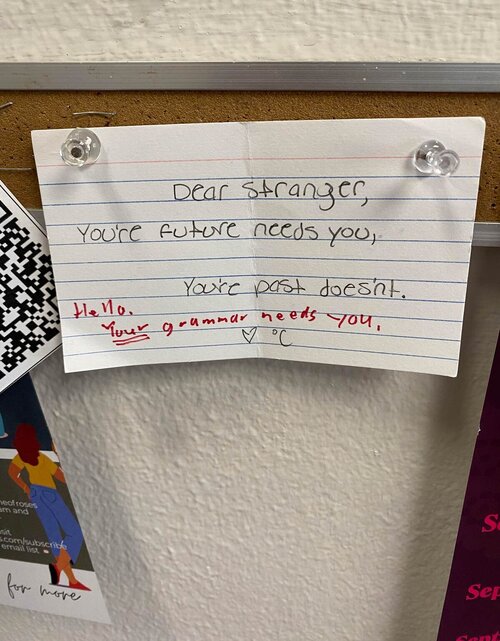 Dear Stranger,
You're future needs you,
You're past does'nt.
Hello.
Your grammar needs you.
♡ °C
neofroses
am and
visit
s.com/subscribe
email list
for more
Se
Sep
Sept